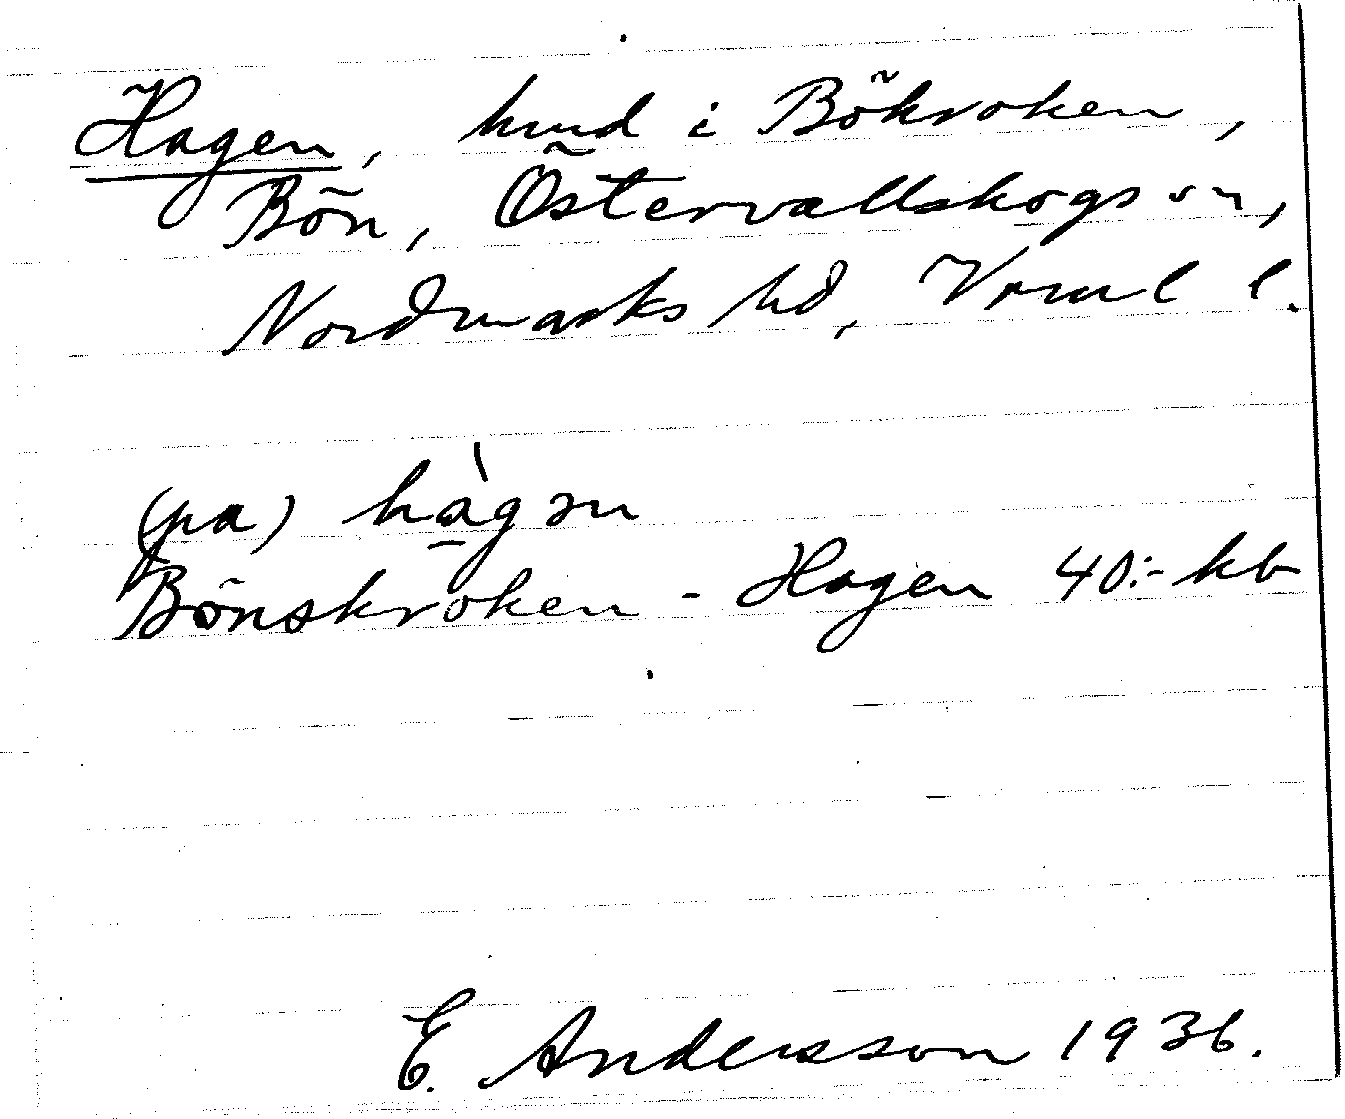 Hagen, hmd i Bökroken,
Bön, Östervallskogs sn,
Nordmarks hd, Vrml l.
(pa) hàgəu
Bönskroken - Hagen 40:- kb
E. Andersson 1936.